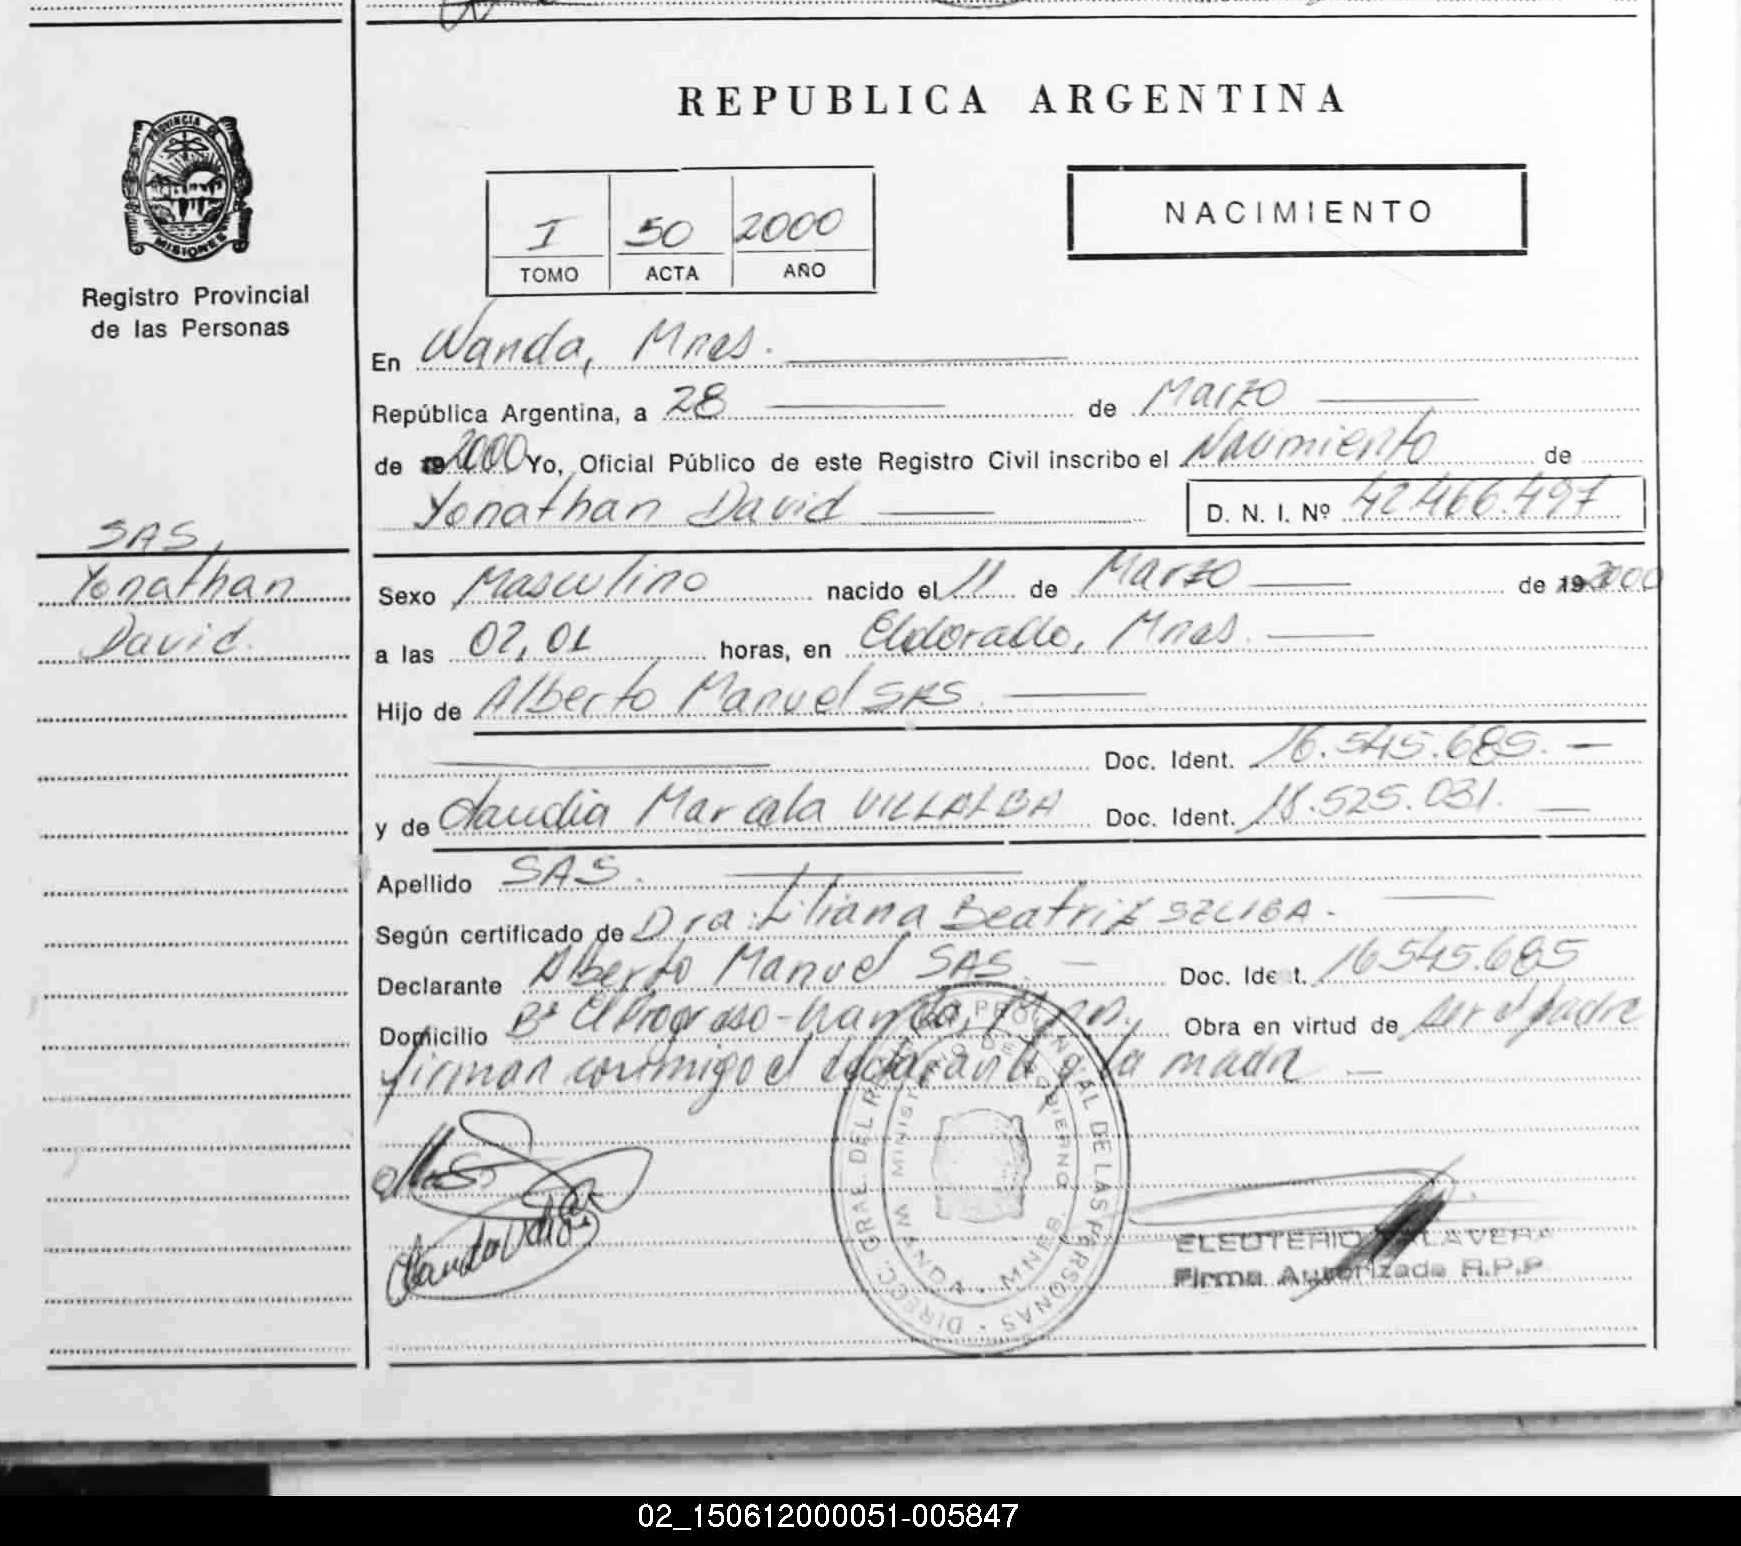 REPUBLICA ARGENTINA
PROVINCIA DE
MISIONES
Registro Provincial
de las Personas
I 50 2000
TOMO ACTA AÑO
NACIMIENTO
En Wanda, Mnes.
República Argentina, a 28 de Marzo
de 2000 Yo, Oficial Público de este Registro Civil inscribo el Nacimiento de
Yonathan David D. N. I. Nº 42.466.497
SAS,
Yonathan
David.
Sexo Masculino nacido el 11 de Marzo de 192000
a las 02,01 horas, en Eldorado, Mnes.
Hijo de Alberto Manuel SAS.
Doc. Ident. 16.545.685.
y de Claudia Marcela VILLALBA Doc. Ident. 18.525.031.
Apellido SAS.
Según certificado de Dra. Liliana Beatriz SZLIGA.
Declarante Alberto Manuel SAS. Doc. Ident. 16545.685
Domicilio Bº El Progreso-Wanda, Mnes. Obra en virtud de ser el padre
firman conmigo el declarante y la madre
DIRECC. GRAL. DEL REGISTRO PROVINCIAL DE LAS PERSONAS
MINISTERIO DE GOBIERNO
WANDA - MNES.
ELEUTERIO TALAVERA
Firma Autorizada R.P.P
02_150612000051-005847